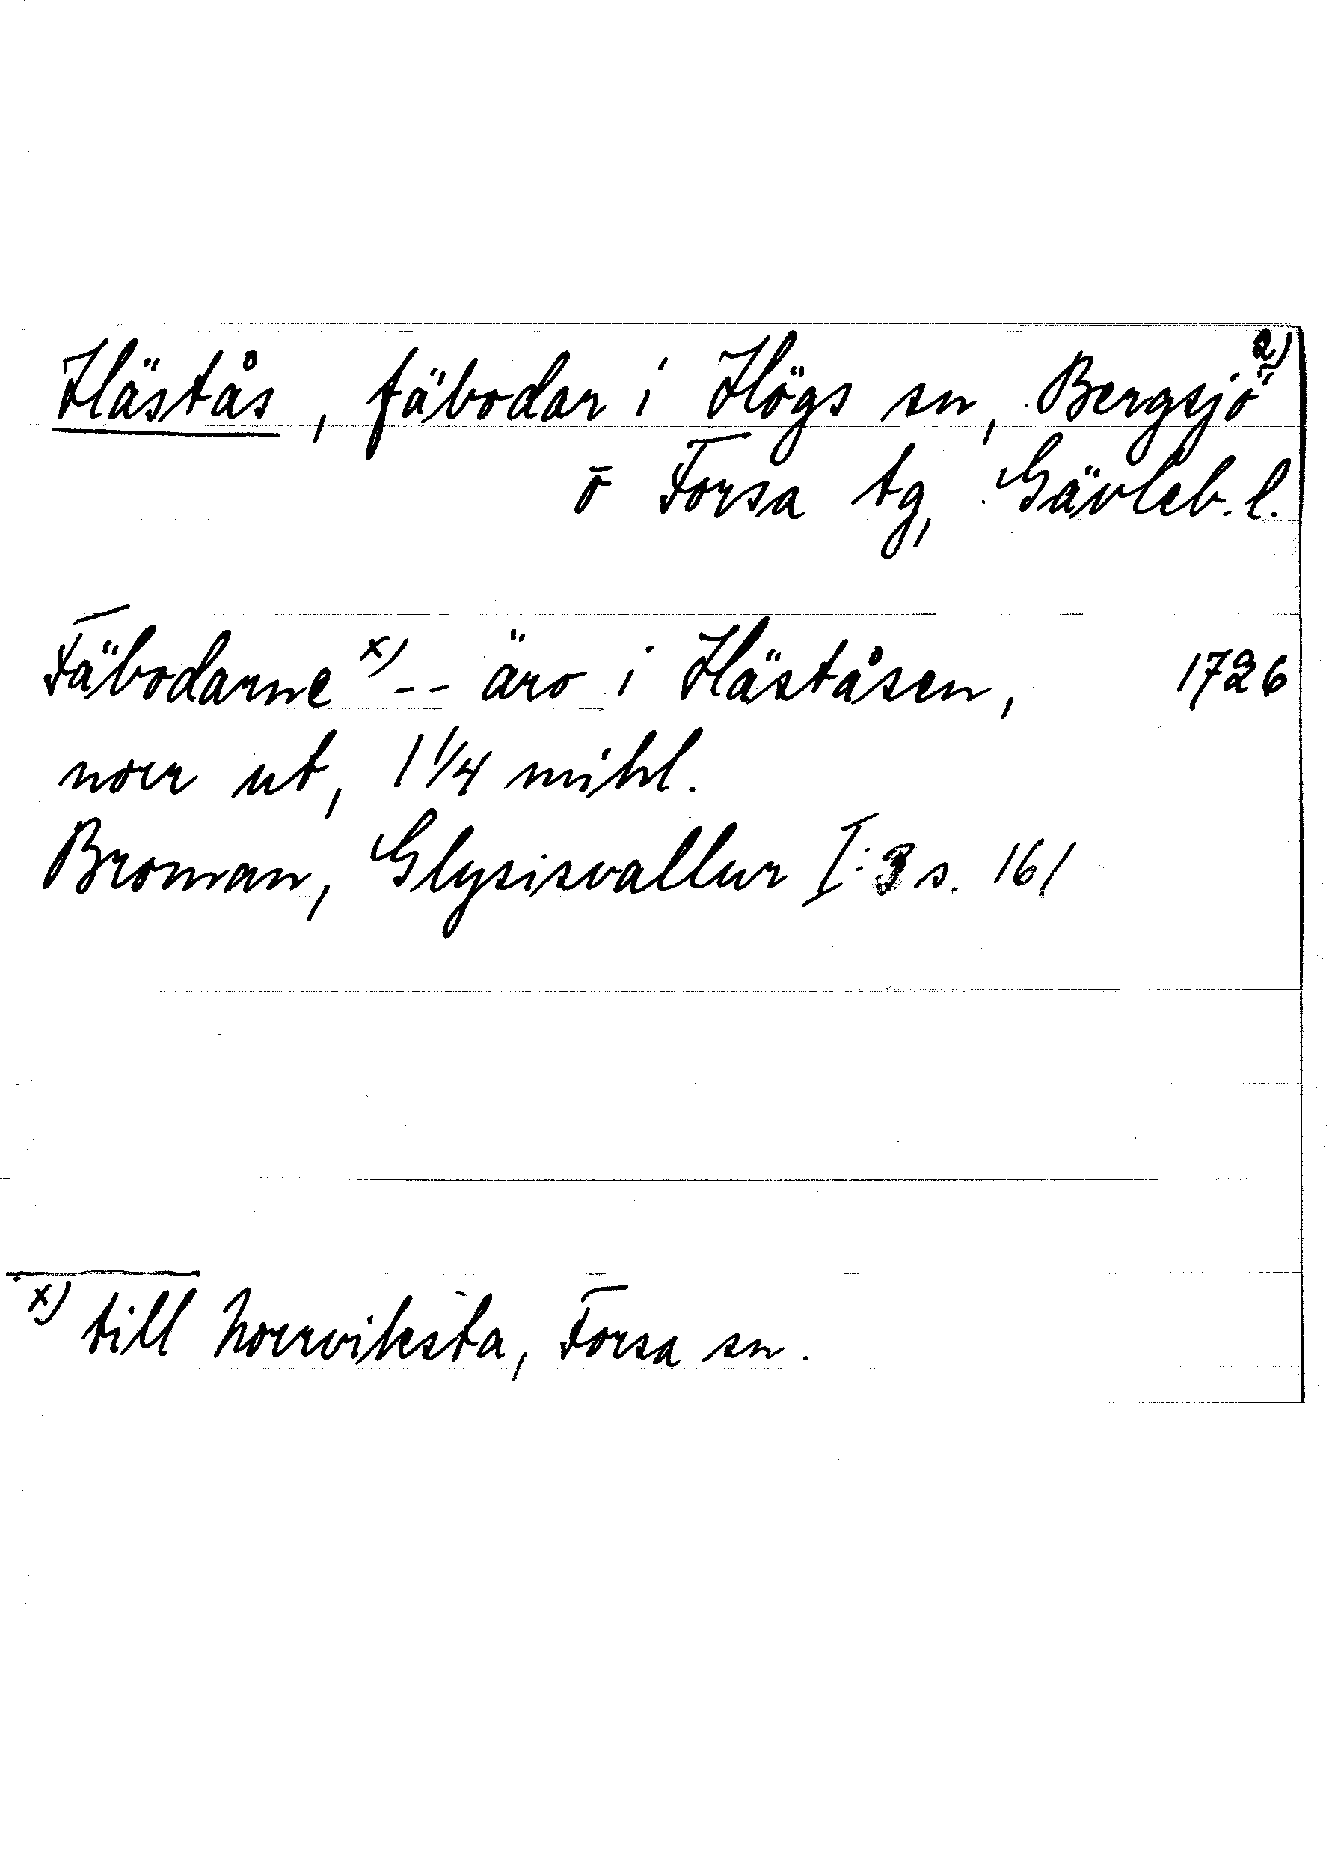 2)
Hästås, fäbodar i Högs sn, Bergsjö
o Forsa tg, Gävleb. l.
Fäbodarne x) -- äro i Häståsen, 1726
norr ut, 1 1/4 mihl.
Broman, Glysisvallur I:3 s. 161
x) till Norrviksta, Forsa sn.